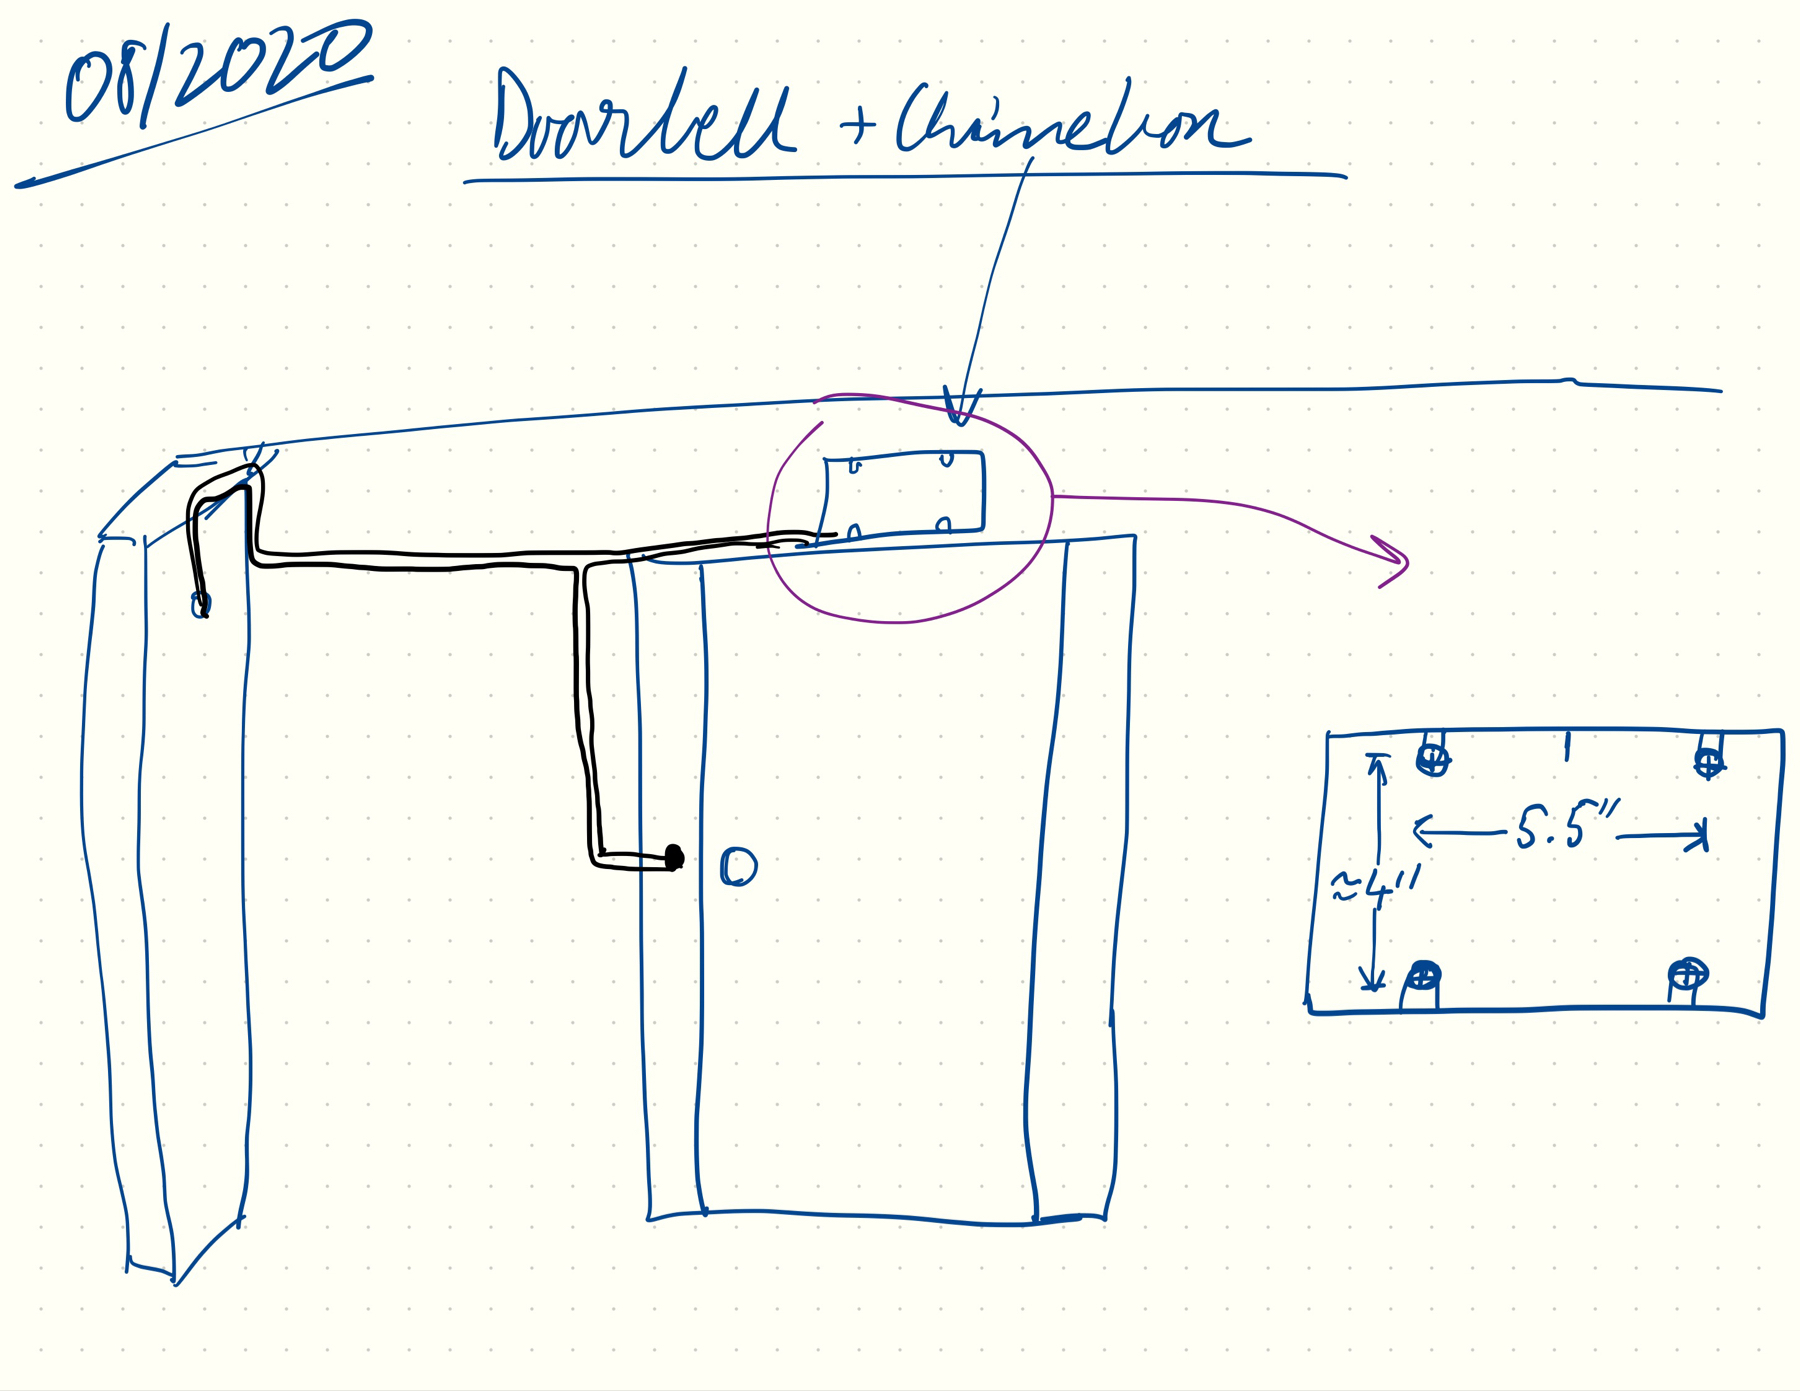 08/2020
Doorbell + Chamelion
5.5"
≈4"